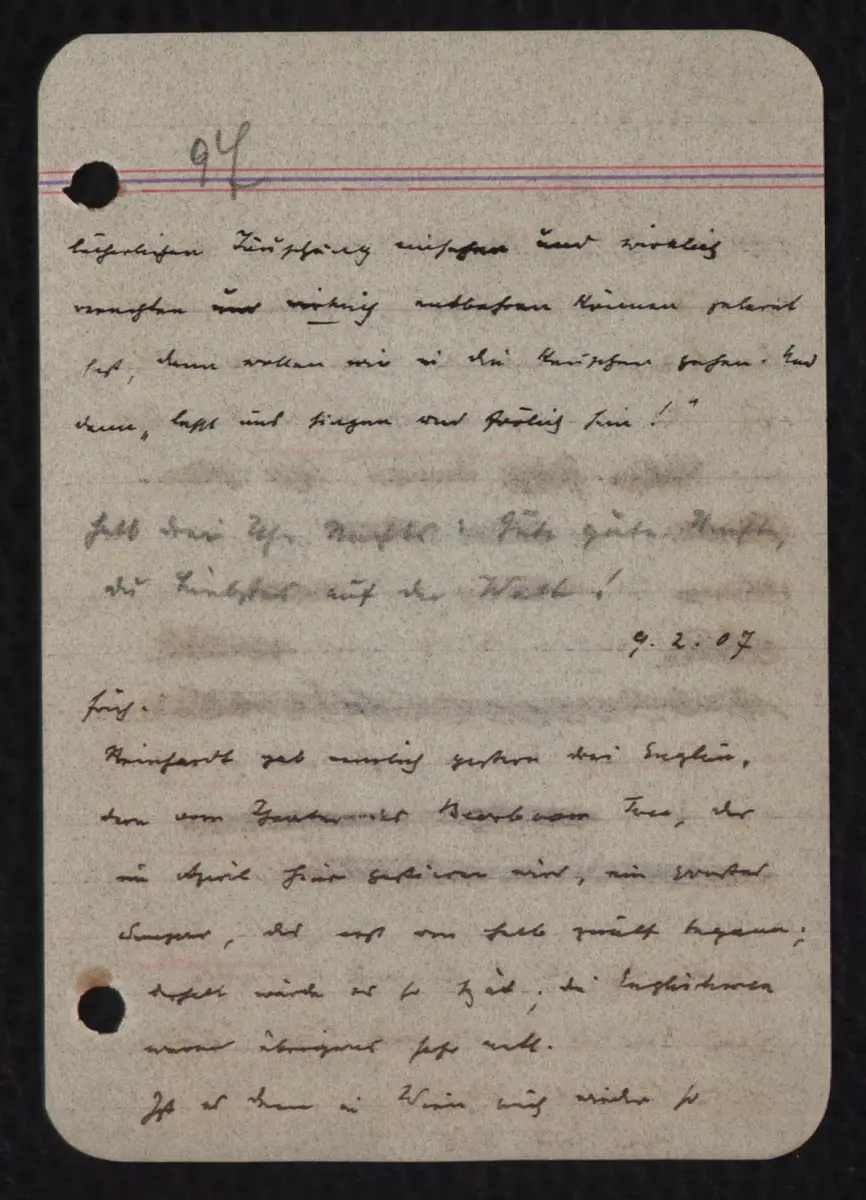 97
lächerlichen Täuschung und wirklich
verachten und wirklich entbehren können gelernt
hast, dann wollen wir in die gehen. Und
dann „lasst uns singen und fröhlich sein!"
halb drei Uhr Nachts: Gute gute Nacht,
du Liebstes auf der Welt!
9. 2. 07
früh.
Reinhardt gab neulich gestern drei Englän-
dern vom Theater des Beerbohm Tree, der
im April hier gastieren wird, ein
Souper, das erst um halb zwölf begann;
deshalb wurde es so spät; die Engländer
waren übrigens sehr nett.
Ist es denn in Wien auch wieder so